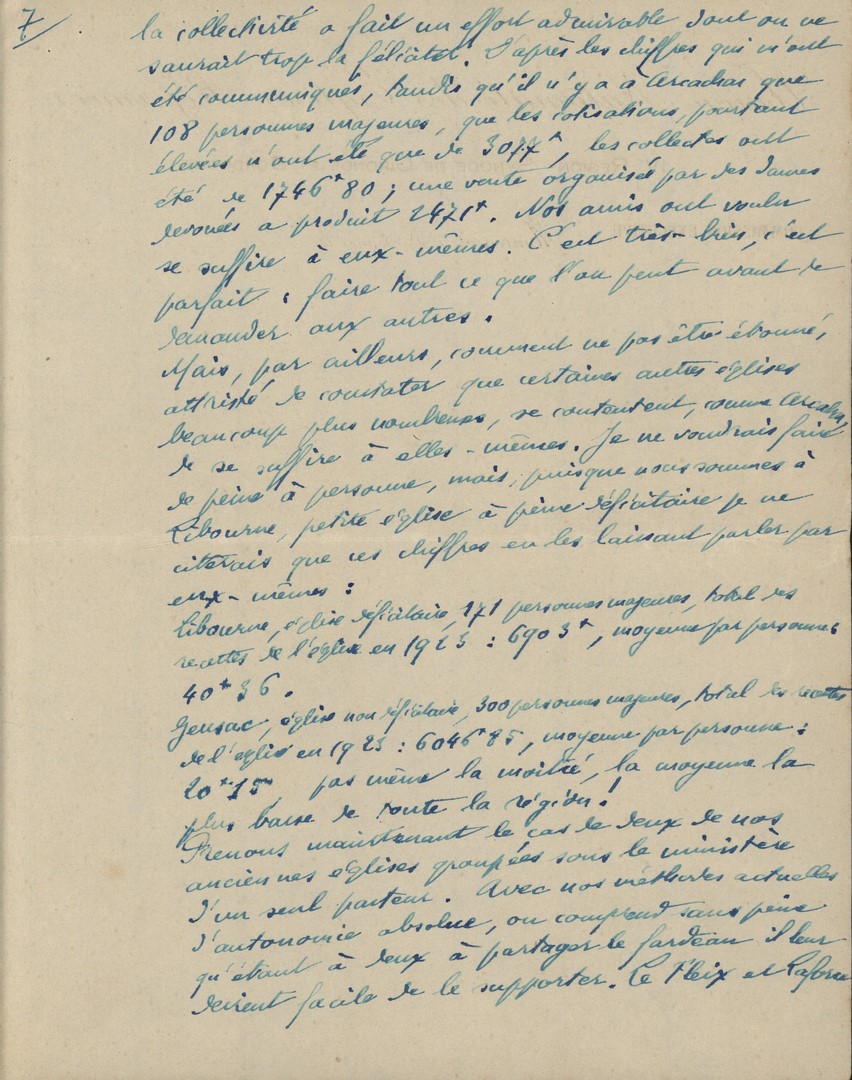 7
la collectivité a fait un effort admirable dont on ne
saurait trop la féliciter. D'après les chiffres qui m'ont
été communiqués, tandis qu'il n'y a à Arcachon que
108 personnes majeures, que les cotisations, pourtant
élevées n'ont été que de 3077f, les collectes ont
été de 1746f80 ; une vente organisée par des dames
dévouées a produit 2471f. Nos amis ont voulu
se suffire à eux-mêmes. C'est très-bien, c'est
parfait : faire tout ce que l'on peut avant de
demander aux autres.
Mais, par ailleurs, comment ne pas être étonné,
attristé de constater que certaines autres églises
beaucoup plus nombreuses, se contentent, comme Arcachon,
de se suffire à elles-mêmes. Je ne voudrais faire
de peine à personne, mais, puisque nous sommes à
Libourne, petite église à peine déficitaire je ne
citerais que ces chiffres en les laissant parler par
eux-mêmes :
Libourne, église déficitaire, 171 personnes majeures, total des
recettes de l'église en 1923 : 6903f, moyenne par personne :
40f36.
Gensac, église non déficitaire, 300 personnes majeures, total des recettes
de l'église en 1923 : 6046f85, moyenne par personne :
20f15, pas même la moitié, la moyenne la
plus basse de toute la région !
Prenons maintenant le cas de deux de nos
anciennes églises groupées sous le ministère
d'un seul pasteur. Avec nos méthodes actuelles
d'autonomie absolue, on comprend sans peine
qu'étant à deux à partager le fardeau il leur
devient facile de le supporter. Le Fleix et Laforce